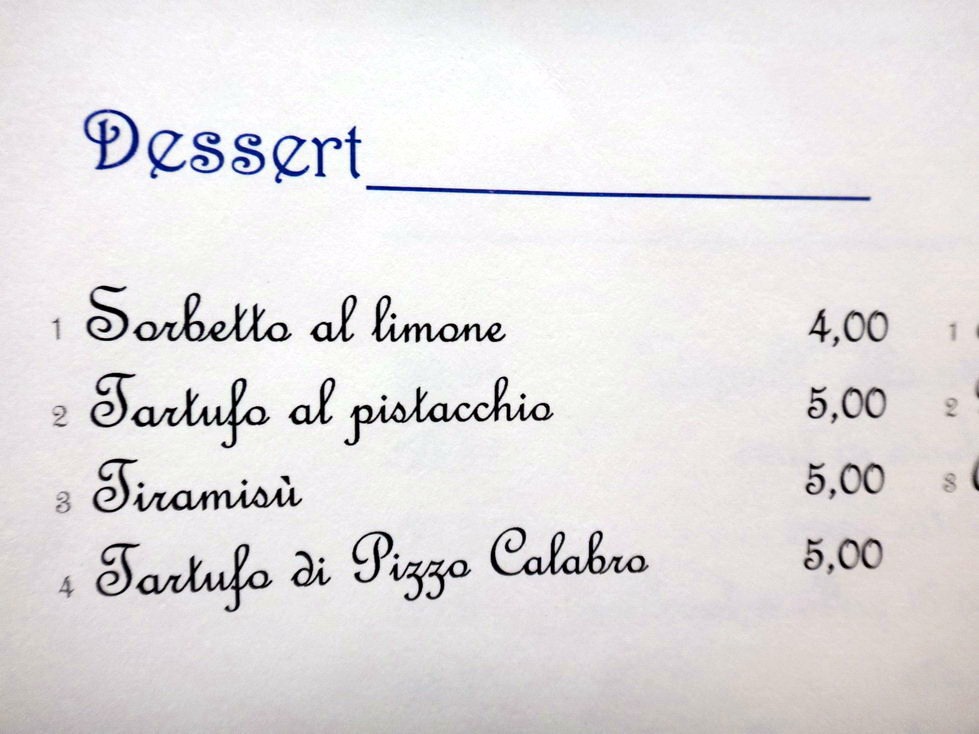 Dessert
1 Sorbetto al limone 4,00
2 Tartufo al pistacchio 5,00
3 Tiramisù 5,00
4 Tartufo di Pizzo Calabro 5,00
1
2
3